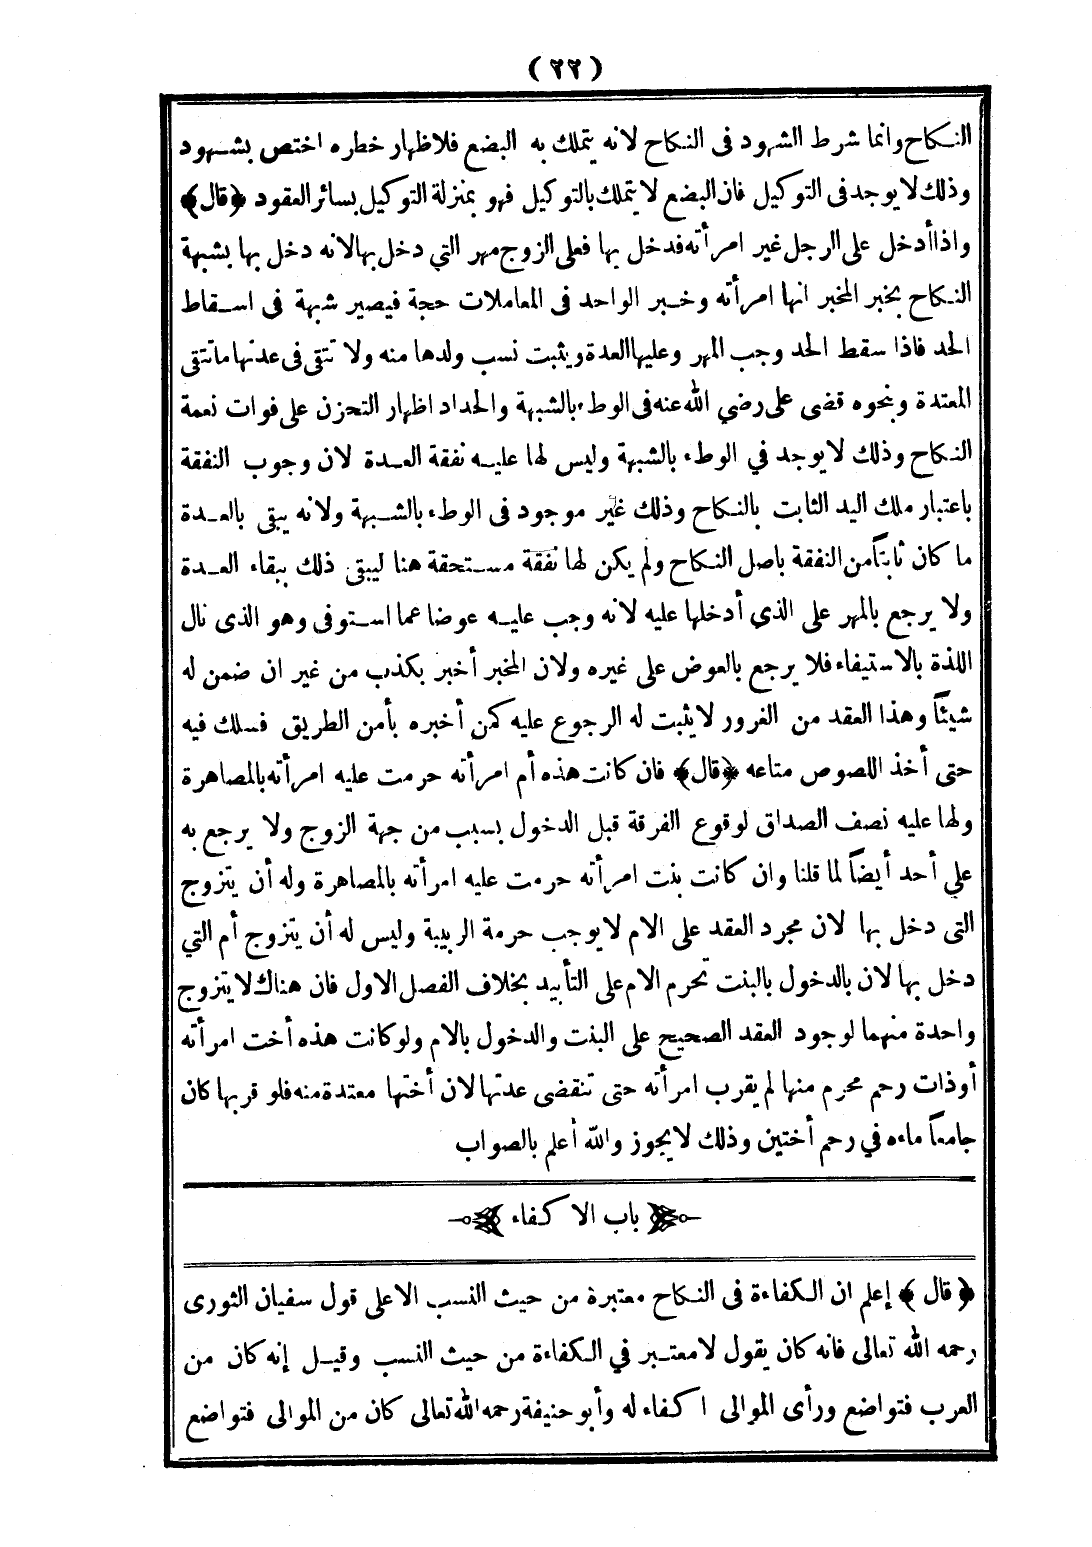 (٢٢)
النكاح وانما شرط الشهود فى النكاح لانه يتملك به البضع فلاظهار خطره اختص بشهود
وذلك لا يوجد فى التوكيل فان البضع لا يتملك بالتوكيل فهو بمنزلة التوكيل بسائر العقود ﴿قال﴾
واذا أدخل على الرجل غير امرأته فدخل بها فعلى الزوج مهر التي دخل بها لانه دخل بها بشبهة
النكاح بخبر المخبر انها امرأته وخبر الواحد فى المعاملات حجة فيصير شبهة فى اسقاط
الحد فاذا سقط الحد وجب المهر وعليها العدة ويثبت نسب ولدها منه ولا تتقى فى عدتها ما تتقى
المعتدة وبنحوه قضى على رضي الله عنه فى الوطء بالشبهة والحداد اظهار التحزن على فوات نعمة
النكاح وذلك لا يوجد في الوطء بالشبهة وليس لها عليه نفقة العدة لان وجوب النفقة
باعتبار ملك اليد الثابت بالنكاح وذلك غير موجود فى الوطء بالشبهة ولانه يبقى بالعدة
ما كان ثابتاً من النفقة باصل النكاح ولم يكن لها نفقة مستحقة هنا ليبقى ذلك ببقاء العدة
ولا يرجع بالمهر على الذي أدخلها عليه لانه وجب عليه عوضا عما استوفى وهو الذى نال
اللذة بالاستيفاء فلا يرجع بالعوض على غيره ولان المخبر أخبر بكذب من غير ان ضمن له
شيئاً وهذا العقد من الغرور لا يثبت له الرجوع عليه كمن أخبره بأمن الطريق فسلك فيه
حتى أخذ اللصوص متاعه ﴿قال﴾ فان كانت هذه أم امرأته حرمت عليه امرأته بالمصاهرة
ولها عليه نصف الصداق لوقوع الفرقة قبل الدخول بسبب من جهة الزوج ولا يرجع به
علي أحد أيضاً لما قلنا وان كانت بنت امرأته حرمت عليه امرأته بالمصاهرة وله أن يتزوج
التى دخل بها لان مجرد العقد على الام لا يوجب حرمة الربيبة وليس له أن يتزوج أم التي
دخل بها لان بالدخول بالبنت تحرم الام على التأبيد بخلاف الفصل الاول فان هناك لا يتزوج
واحدة منهما لوجود العقد الصحيح على البنت والدخول بالام ولو كانت هذه أخت امرأته
أو ذات رحم محرم منها لم يقرب امرأته حتى تنقضى عدتها لان أختها معتدة منه فلو قربها كان
جامعاً ماءه في رحم أختين وذلك لا يجوز والله أعلم بالصواب
باب الاكفاء
﴿قال﴾ إعلم ان الكفاءة فى النكاح معتبرة من حيث النسب الا على قول سفيان الثورى
رحمه الله تعالى فانه كان يقول لا معتبر في الكفاءة من حيث النسب وقيل إنه كان من
العرب فتواضع ورأى الموالى اكفاء له وأبو حنيفة رحمه الله تعالى كان من الموالى فتواضع